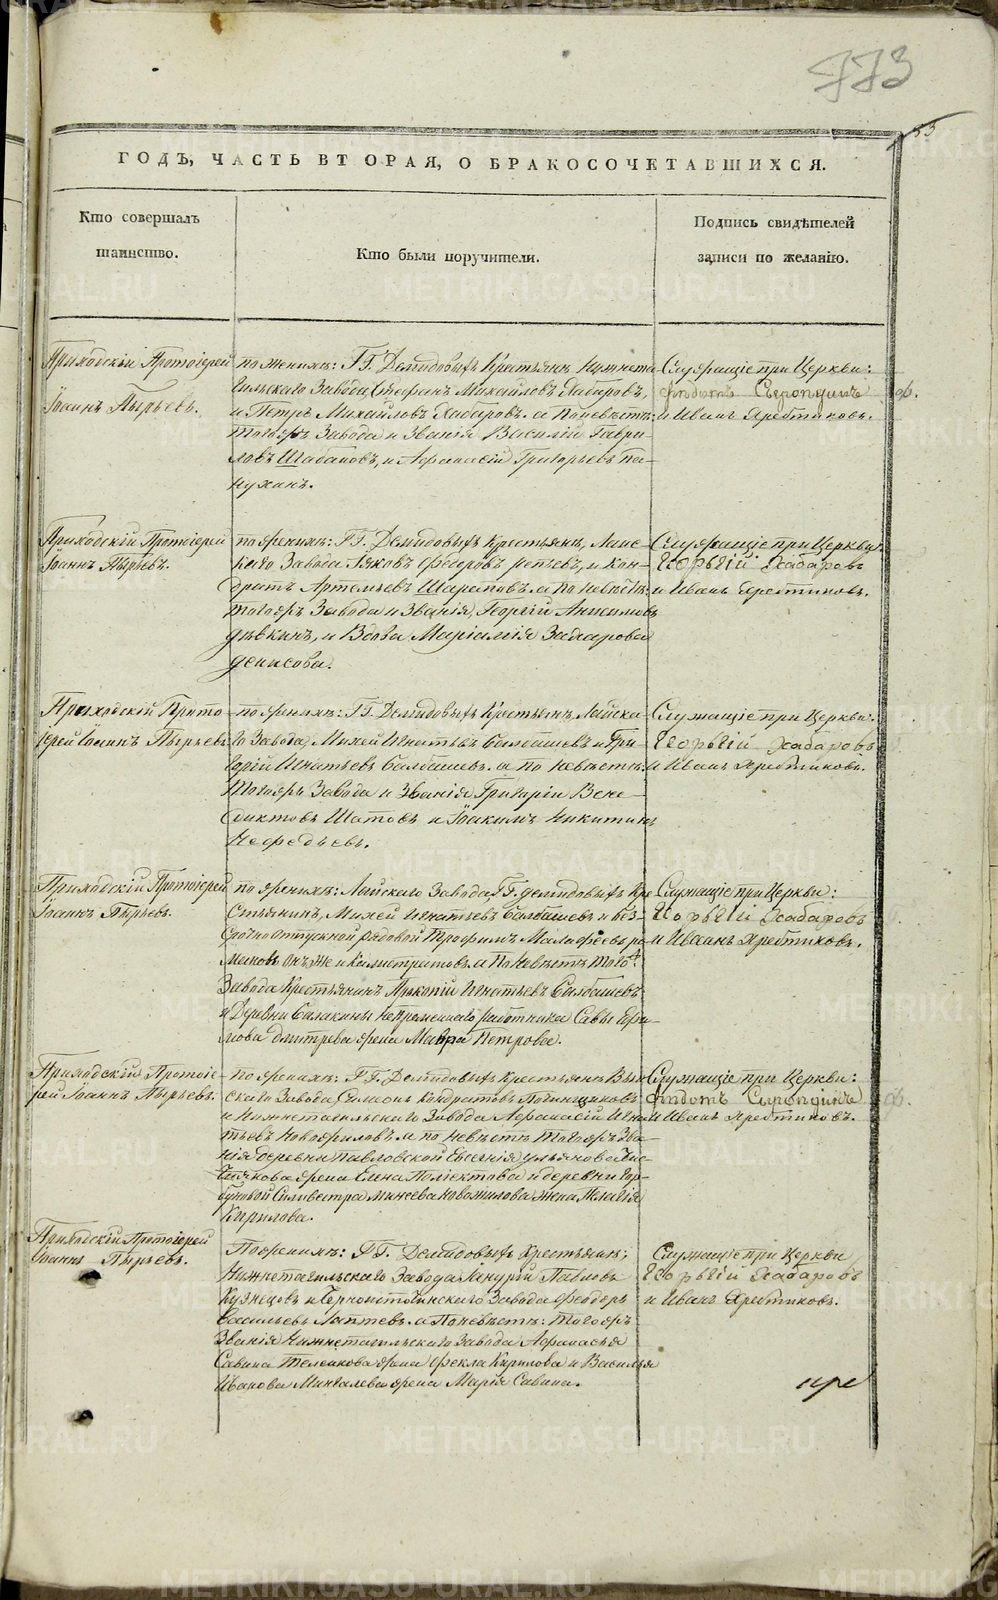 773
55
ГОДЪ, ЧАСТЬ ВТОРАЯ, О БРАКОСОЧЕТАВШИХСЯ.
Кто совершалъ
таинство.
Кто были поручители.
Подпись свидѣтелей
записи по желанію.
Приходскій Протоіерей
Іоаннъ Пырьевъ.
по женихѣ: Г.Г. Демидовыхъ Крестьяне Нижнета-
гильскаго Завода Стефанъ Михайловъ Хабаровъ,
и Петръ Михайловъ Хабаровъ. а по невѣстѣ:
тогоже Завода и Званія Василій Гаври-
ловъ Шабановъ, и Афанасій Григорьевъ Па-
нухинъ.
Служащіе при Церкви:
и Иванъ Хребтиковъ.
Приходскій Протоіерей
Іоаннъ Пырьевъ.
по женихѣ: Г.Г. Демидовыхъ Крестьяне, Лайс-
каго Завода Яковъ Федоровъ и Кон-
дратъ Артемьевъ Шараповъ. а по невѣстѣ:
тогоже Завода и Званія,
дѣвкинъ, и Вдова Маріамія Захарова
Денисова.
Служащіе при Церкви:
Георгій Хабаровъ
и Иванъ Хребтиковъ.
Приходскій Прото-
іерей Іоаннъ Пырьевъ.
по женихѣ: Г.Г. Демидовыхъ Крестьяне, Лайска-
го Завода, Михей Игнатьевъ Балбашевъ и Гри-
горій Игнатьевъ Балбашевъ. а по невѣстѣ:
тогоже Завода и Званія Григорій Вене-
диктовъ Шатовъ и Іоакимъ Никитинъ
Нефедьевъ.
Служащіе при Церкви:
Георгій Хабаровъ
и Иванъ Хребтиковъ.
Приходскій Протоіерей
Іоаннъ Пырьевъ.
по женихѣ: Лайскаго Завода, Г.Г. Демидовыхъ Кре-
стьянинъ, Михей Игнатьевъ Балбашевъ и без-
срочно отпускной рядовой Трофимъ Малафеевъ ро-
мановъ онъ же и Калистратовъ. а по невѣстѣ того
Завода Крестьянинъ Прокопій Игнатьевъ Балбашевъ
и Деревни непременнаго работника Савы Ефи-
мова Дмитрева жена Мавра Петрова.
Служащіе при Церкви:
Георгій Хабаровъ
и Иванъ Хребтиковъ.
Приходскій Протоіе-
рей Іоаннъ Пырьевъ.
по женихѣ: Г.Г. Демидовыхъ Крестьяне Вый-
скаго Завода, Симеонъ Кондратовъ
и Нижнетагильскаго Завода Афанасій Игна-
тьевъ Новожиловъ. а по невѣстѣ тогоже Зва-
нія деревни Павловской Евгенія Ульянова
жена Елена Поліектова и деревни Гор-
буновой Силивестра Минеева Новожилова жена Пелагія
Кирилова.
Служащіе при Церкви:
и Иванъ Хребтиковъ.
Приходскій Протоіерей
Іоаннъ Пырьевъ.
По женихѣ: Г.Г. Демидовыхъ Крестьяне;
Нижнетагильскаго Завода Павловъ
Кузнецовъ и Черноисточинскаго Завода Феодоръ
Васильевъ Лаптевъ. а по невѣстѣ: тогоже
Званія Нижнетагильскаго Завода Афанасья
Савина Теленкова жена Фекла Кирилова и Василья
Иванова Минталева жена Марія Савина.
Служащіе при Церкви
Георгій Хабаровъ
и Иванъ Хребтиковъ.
METRIKI.GASO-URAL.RU